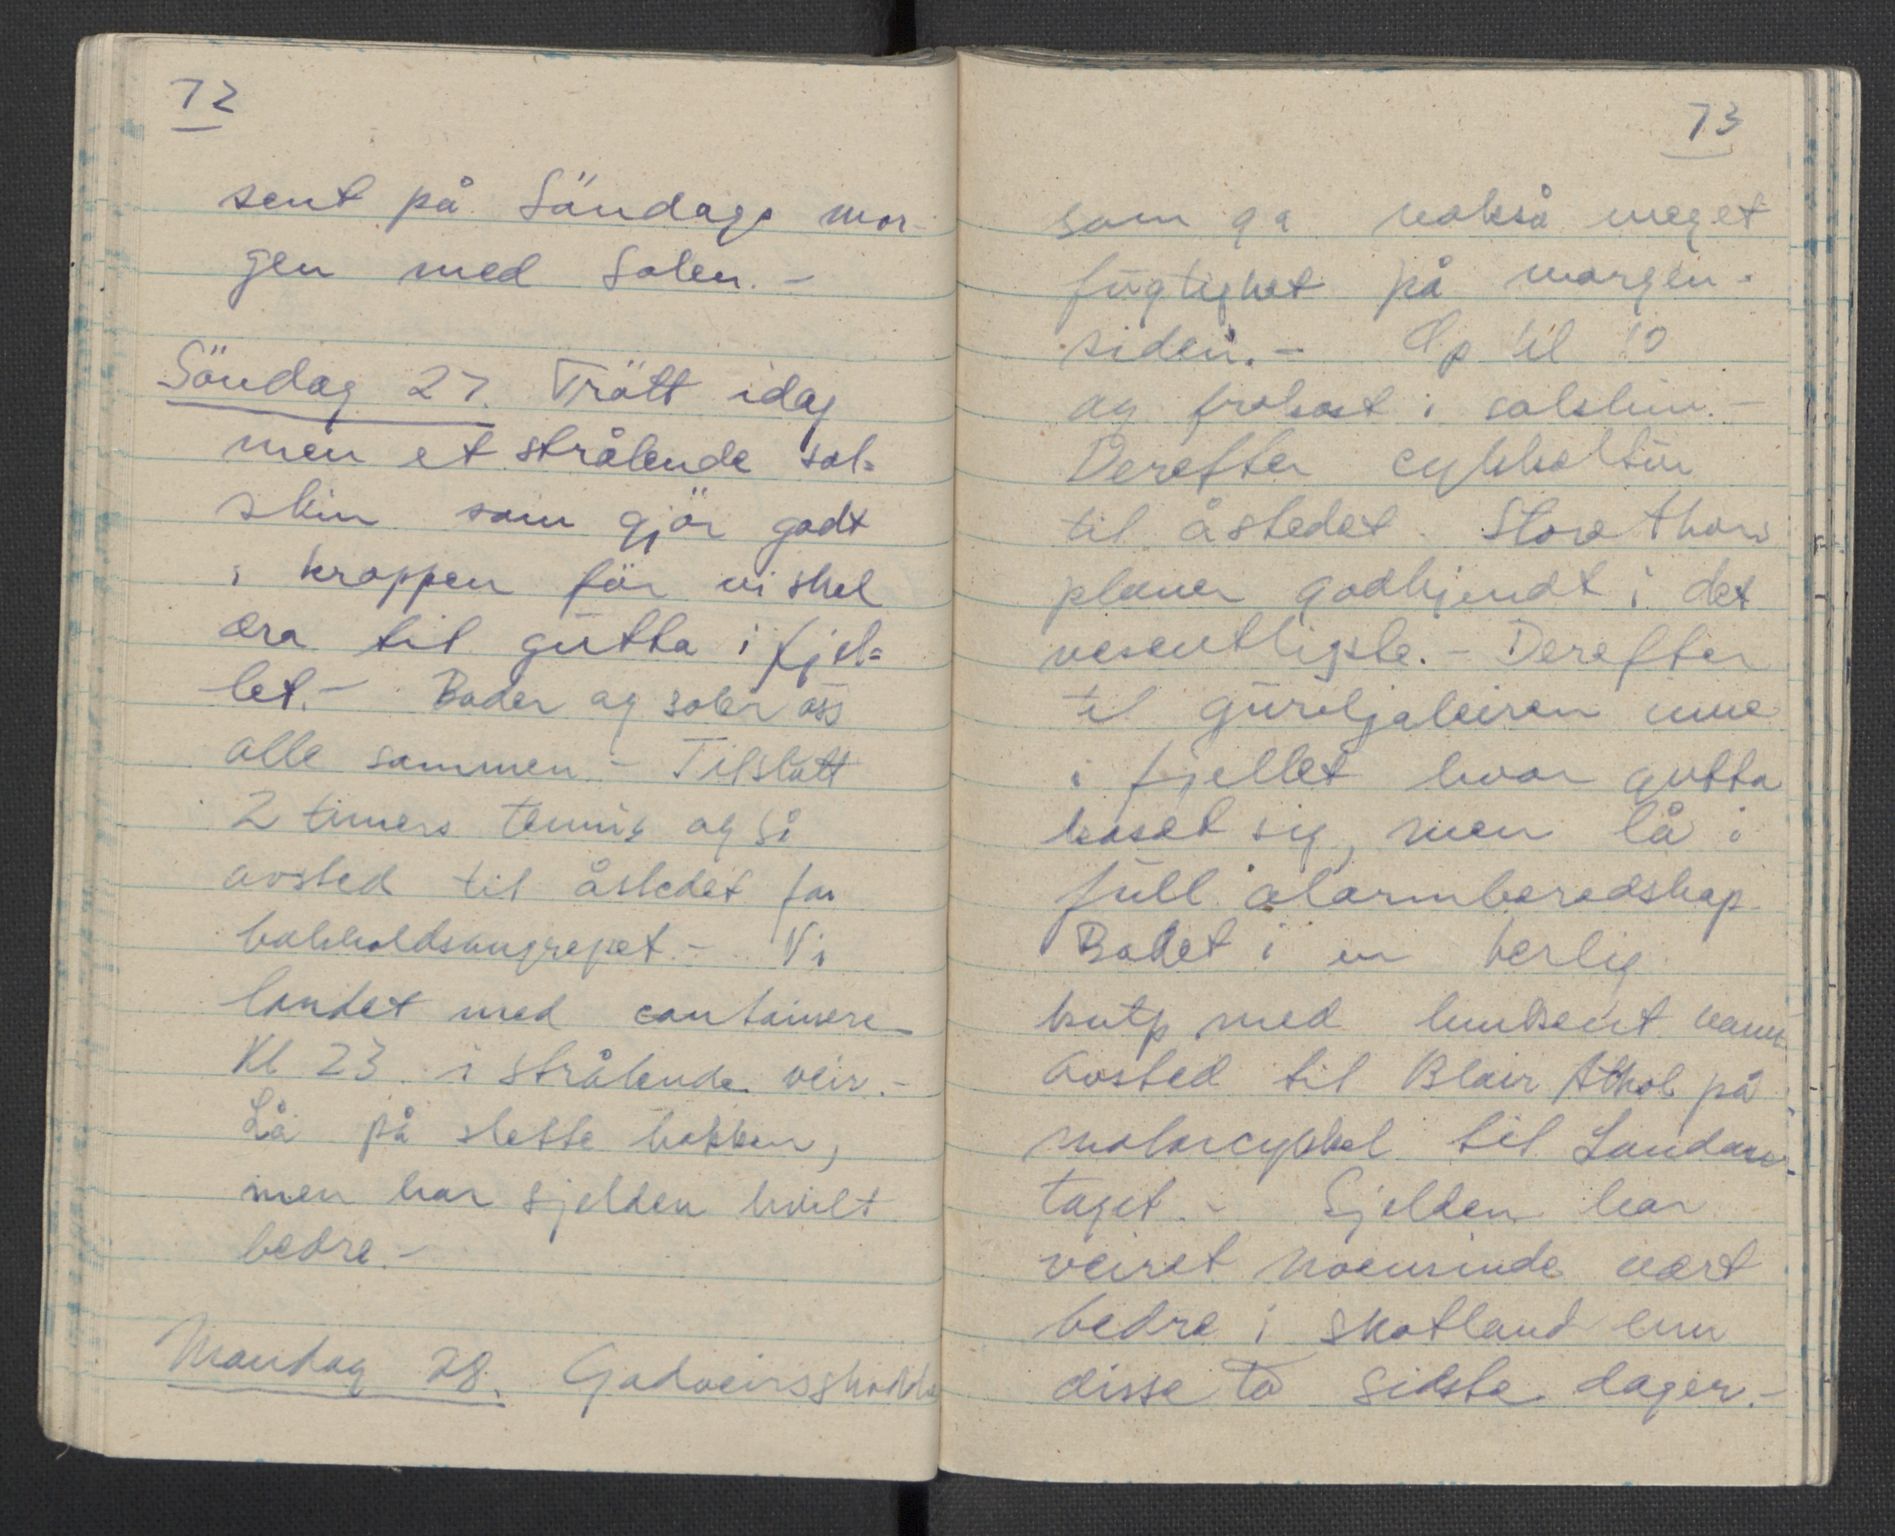 72
sent på Söndags mor-
gen med Solen. -
Söndag 27. Trött idag
men et strålende sol=
skin som gjör godt
i kroppen för vi skal
dra til gutta i fjel=
let. - Bader og soler oss
alle sammen. - Tilslutt
2 timers tennis og så
avsted til åstedet for
bakholdsangrepet. - Vi
landet med containere
Kl 23 i strålende veir. -
Lå på slette bakken,
men har sjelden hvilt
bedre. -
Mandag 28. Godveirsskodde
73
som ga nokså meget
fugtighet på morgen-
siden. - Op til 10
og frokost i solskin. -
Derefter cykkeltur
til åstedet. Store Thors
planer godkjendt i det
vesentligste. - Derefter
til guriljaleiren inne
i fjellet hvor gutta
koset sig, men lå i
full alarmberedskap
Badet i en herlig
kulp med lunkent vann
Avsted til Blair Athol på
motorcykkel til London-
toget. - Sjelden har
veiret noensinde vært
bedre i Skotland enn
disse to sidste dager. -